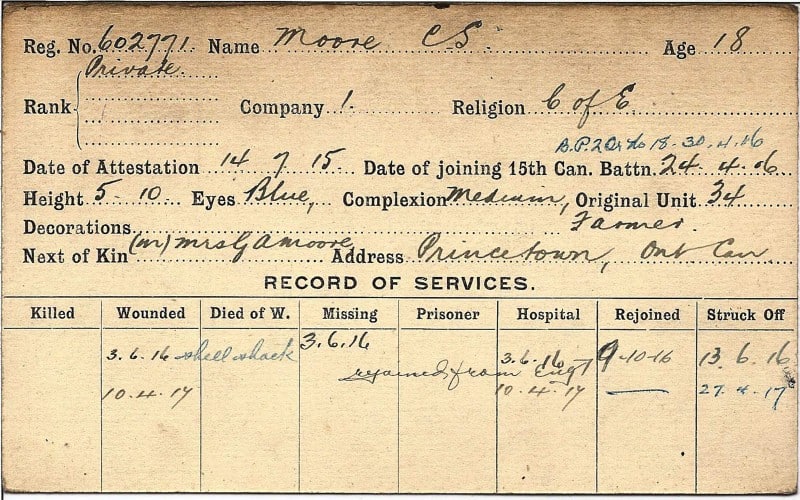 Reg. No. 602771. Name Moore C S. Age 18
Private.
Rank Company 1. Religion C of E.
B.P.2 Ordo 18-30.4.16
Date of Attestation 14 7 15. Date of joining 15th Can. Battn. 24. 4. 16.
Height 5-10 Eyes Blue, Complexion Medium, Original Unit 34
Decorations Farmer.
Next of Kin (m) Mrs G A Moore Address Princetown, Ont Can.
RECORD OF SERVICES.
Killed Wounded Died of W. Missing Prisoner Hospital Rejoined Struck Off
3.6.16 shell shock 3.6.16 3.6.16 9-10-16 13.6.16
rejoined from Engd
10.4.17 10.4.17 — 27.4.17